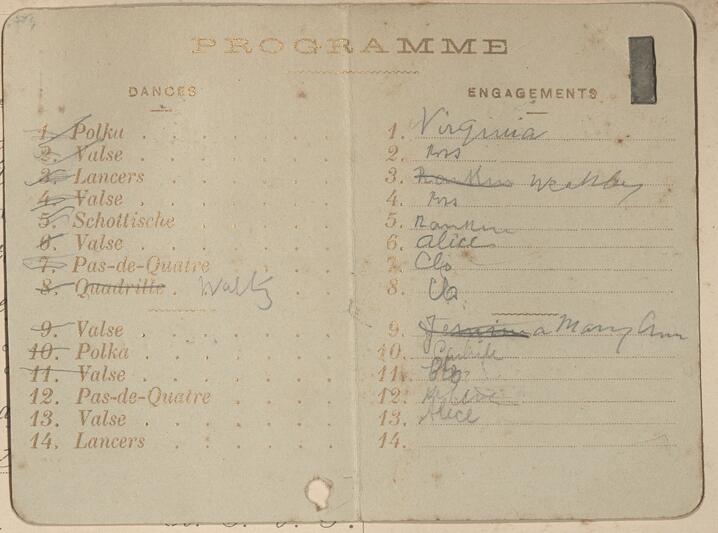 PROGRAMME
DANCES
1. Polka
2. Valse
3. Lancers
4. Valse
5. Schottische
6. Valse
7. Pas-de-Quatre
8. Quadrille Waltz
9. Valse
10. Polka
11. Valse
12. Pas-de-Quatre
13. Valse
14. Lancers
ENGAGEMENTS
1. Virginia
2. Ross
3. Rankin
4. Ross
5. Rankin
6. Alice
7. Clo
8. Clo
9. Mary Ann
10.
11. Clo
12.
13. Alice
14.